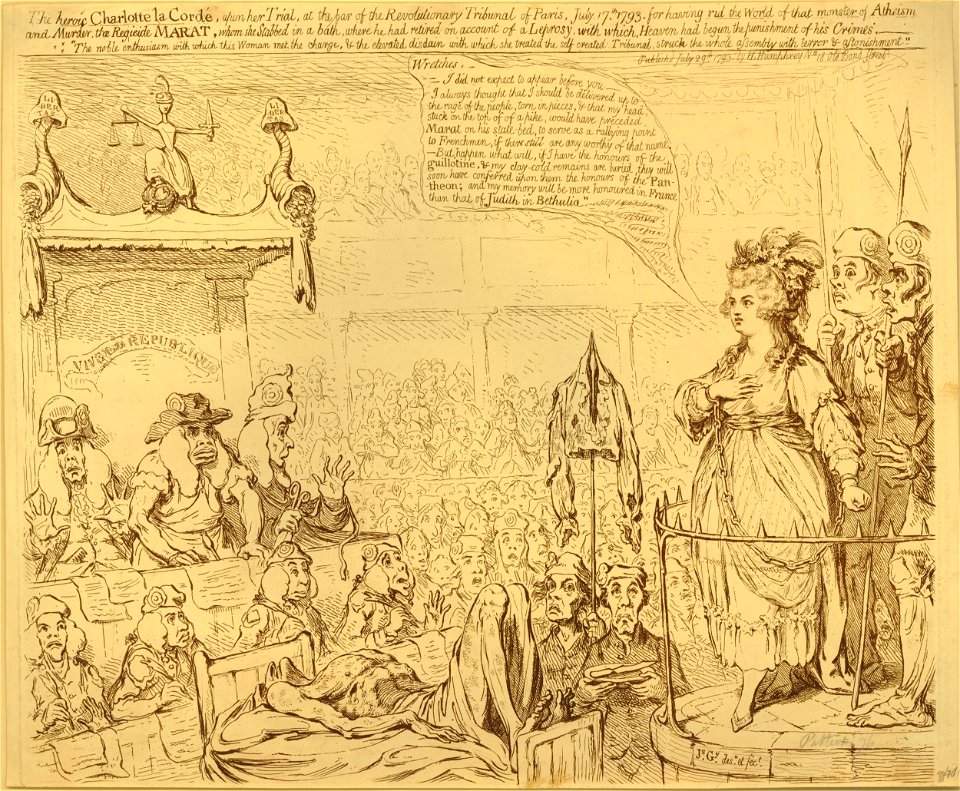 The heroic Charlotte la Cordé, upon her Trial, at the bar of the Revolutionary Tribunal of Paris, July 17th 1793. for having rid the World of that monster of Atheism
and Murder, the Regicide MARAT, whom she Stabbed in a bath, where he had retired on account of a Leprosy, with which, Heaven had begun the punishment of his Crimes.
"The noble enthusiasm with which this Woman met the charge, & the elevated disdain with which she treated the self created Tribunal, struck the whole assembly with terror & astonishment."
Publish'd July 29th 1793. by H. Humphrey No 18 Old Bond Street
Wretches,
— I did not expect to appear before you
– I always thought that I should be delivered up to
the rage of the people, torn in pieces, & that my head,
stuck on the top of of a pike, would have preceded
Marat on his state-bed, to serve as a rallying point
to Frenchmen, if there still are any worthy of that name.
– But, happen what will, if I have the honours of the
guillotine, & my clay-cold remains are buried, they will
soon have conferred upon them the honours of the Pan-
theon; and my memory will be more honoured in France
than that of Judith in Bethulia."
LI
BER
TAS
LI
BER
TAS
VIVE la REPUBLIQUE
Js. Gy. des. et fect.